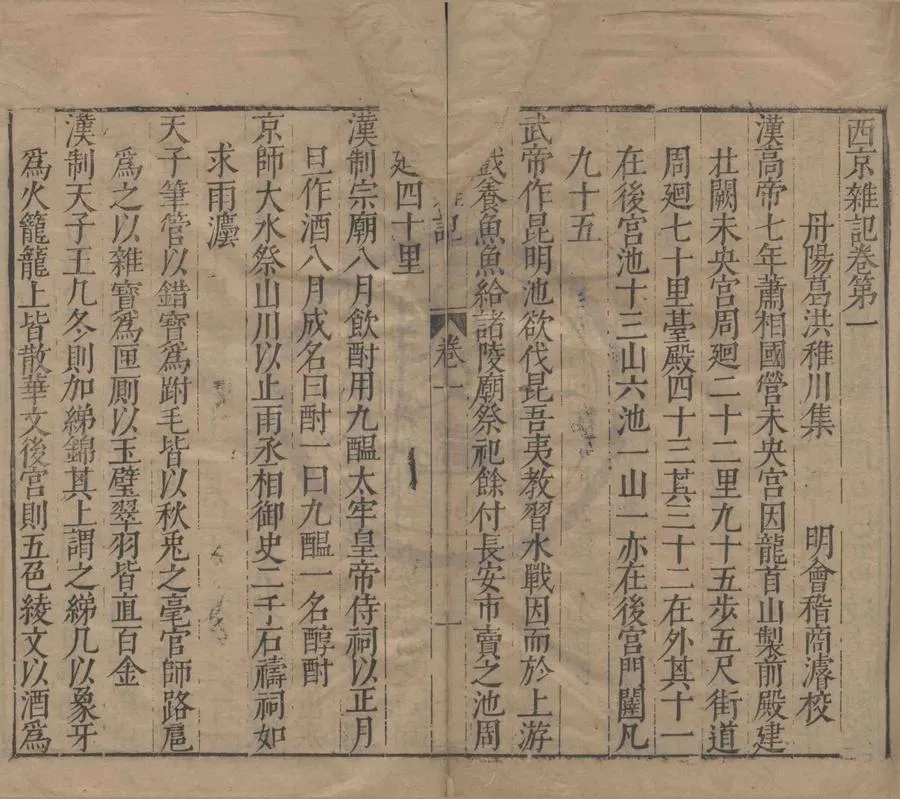 西京雜記卷第一
丹陽葛洪稚川集 明會稽商濬校
漢高帝七年蕭相國營未央宮因龍首山製前殿建
北闕未央宮周廻二十二里九十五步五尺街道
周廻七十里臺殿四十三其三十二在外其十一
在後宮池十三山六池一山一亦在後宮門闥凡
九十五
武帝作昆明池欲伐昆吾夷教習水戰因而於上游
戲養魚魚給諸陵廟祭祀餘付長安市賣之池周
記 卷一 一
廻四十里
漢制宗廟八月飲酎用九醞太牢皇帝侍祠以正月
旦作酒八月成名曰酎一曰九醞一名醇酎
京師大水祭山川以止雨丞相御史二千石禱祠如
求雨灋
天子筆管以錯寶為跗毛皆以秋兎之毫官師路扈
為之以雜寶為匣厠以玉璧翠羽皆直百金
漢制天子玉几冬則加綈錦其上謂之綈几以象牙
為火籠籠上皆散華文後宮則五色綾文以酒為